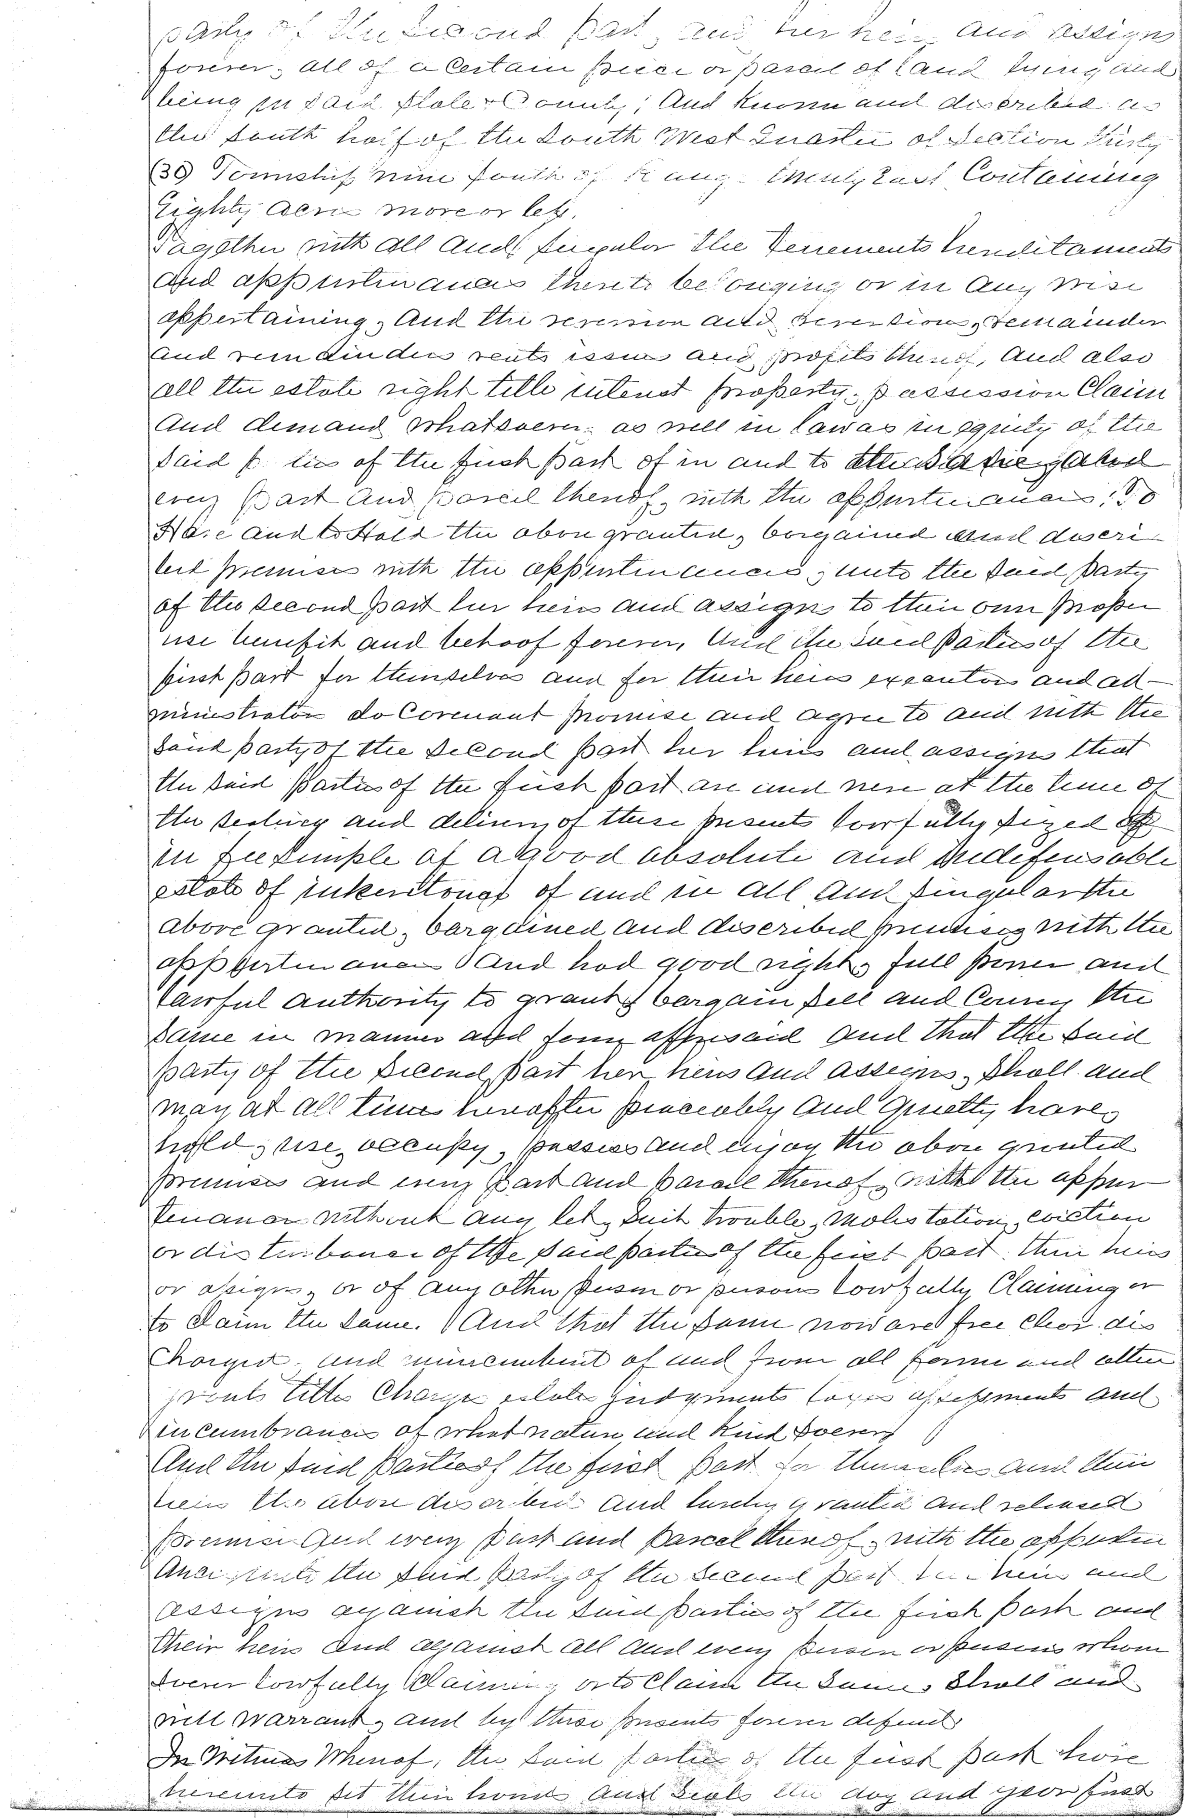 party of the Second Part, and her heirs and assigns
forever, all of a Certain piece or parcel of land lying and
being in said State & County; And known and described as
the South half of the South West Quarter of Section thirty
(30) Township Nine South of Range Twenty East Containing
Eighty Acres more or less.
Together with all and singular the Tenements hereditaments
and appurtinances thereto belonging or in any wise
appertaining, And the reversion and reversions, remainder
and remainders rents issues and profits thereof, And also
all the estate right title interest property, possession Claim
And demand whatsoever, as well in law as in equity of the
Said parties of the first part of in and to the same, and
every part and parcel thereof, with the appurtinances: To
Have and to Hold the above granted, bargained and descri-
bed premises with the appurtinances, unto the Said party
of the Second part her heirs and assigns to their own proper
use benefit and behoof forever, And the said Parties of the
first part for themselves and for their heirs executors and ad-
ministrators do Covenant promise and agree to and with the
Said party of the Second part her heirs and assigns that
the said Parties of the first part are and were at the time of
the sealing and delivery of these presents lawfully seized
in fee simple of a good absolute and Indefensable
estate of inheritance of and in all and singular the
above granted, bargained and described premises with the
appurtinances And had good right, full power and
lawful authority to grant, bargain sell and Convey the
same in manner and form afforesaid And that the said
party of the Second part her heirs and assigns, Shall and
may at all times hereafter peaceably And Quietly have,
hold, use, occupy, possess and enjoy the above granted
premises and every part and parcel thereof, with the appur
tenances without any let, suit trouble, molistation, eviction
or disturbance of the said parties of the first part their heirs
or assigns, or of any other person or persons lawfully Claiming or
to claim the same. And that the same now are free clear dis
Charged and unincumbent of and from all former and other
grants titles Charges estates judgments taxes assessments and
incumbrances of what nature and kind soever,
And the said Parties of the first Part for themselves and their
heirs the above described and hereby granted and released
premises and every part and parcel thereof, with the appurten
ances unto the said Party of the Second part her heirs and
assigns against the said parties of the first part and
their heirs and against all and every person or persons whom
soever lawfully Claiming or to Claim the Same, Shall and
will warrant, and by these presents forever defend
In Witness Whereof, the said parties of the first part have
hereunto set their hands and Seals the day and year first